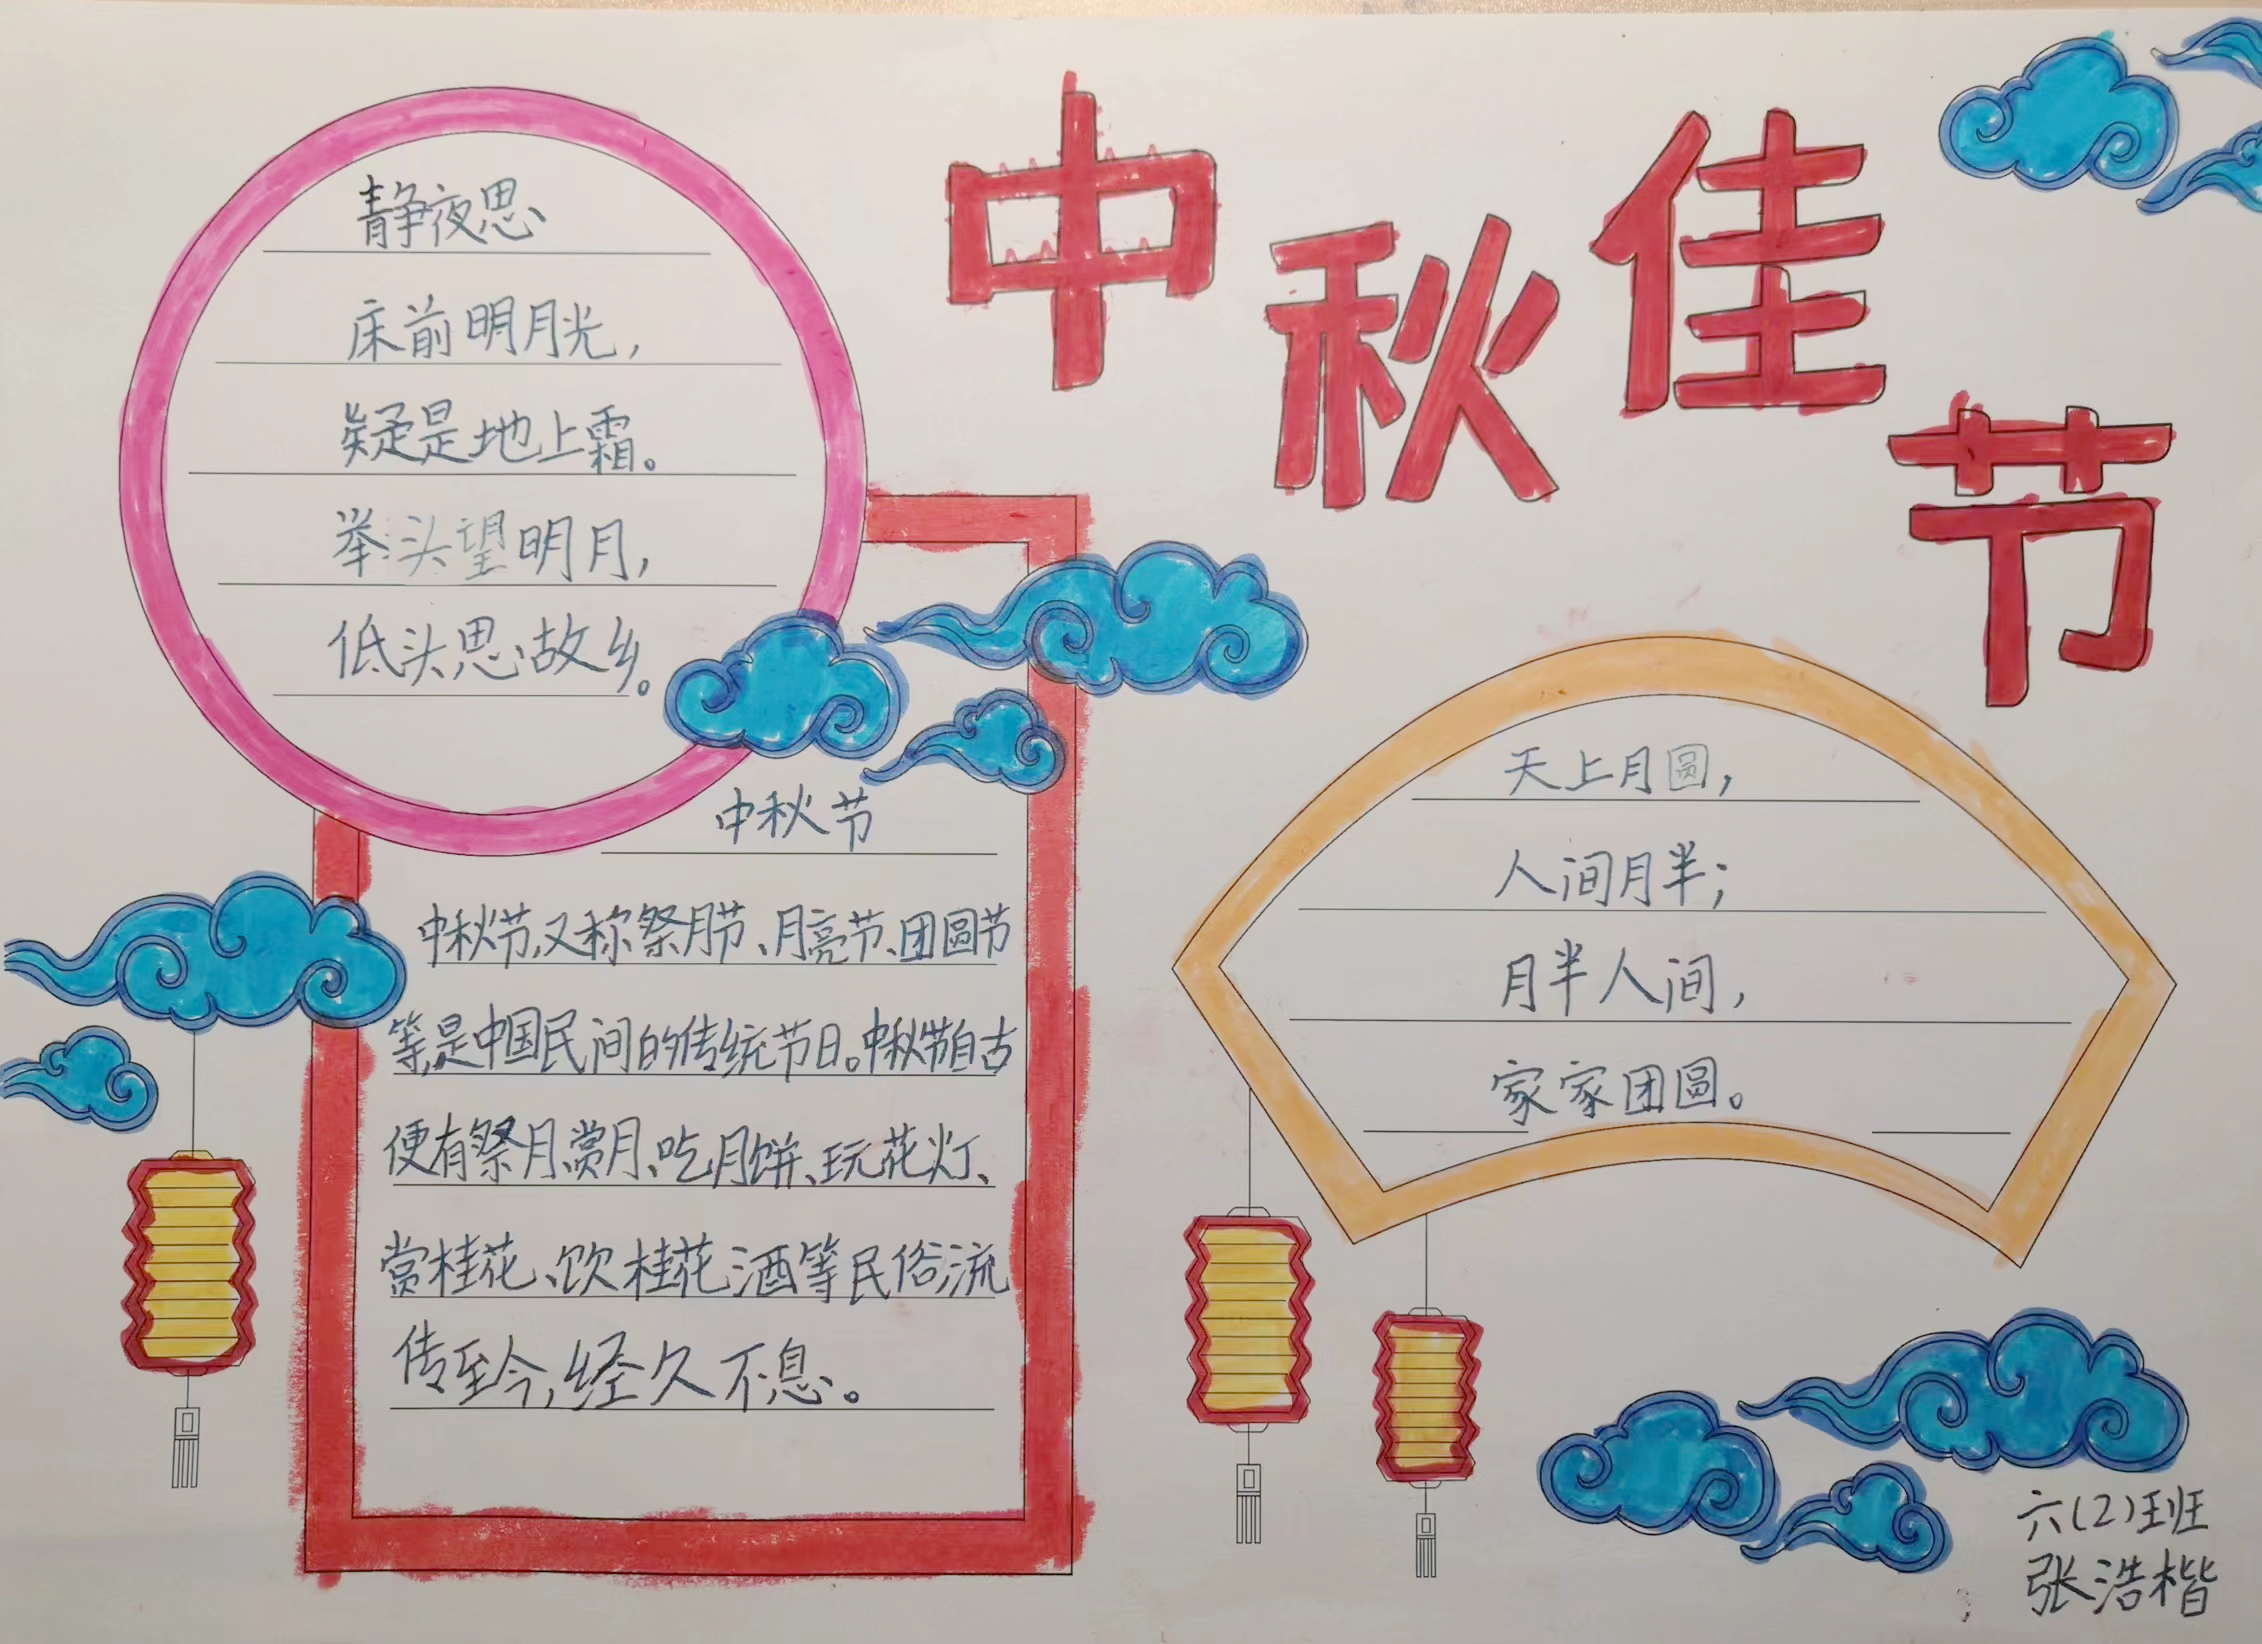 中秋佳节
静夜思
床前明月光，
疑是地上霜。
举头望明月，
低头思故乡。
中秋节
中秋节，又称祭月节、月亮节、团圆节
等，是中国民间的传统节日。中秋节自古
便有祭月、赏月、吃月饼、玩花灯、
赏桂花、饮桂花酒等民俗，流
传至今，经久不息。
天上月圆，
人间月半；
月半人间，
家家团圆。
六(2)班
张浩楷